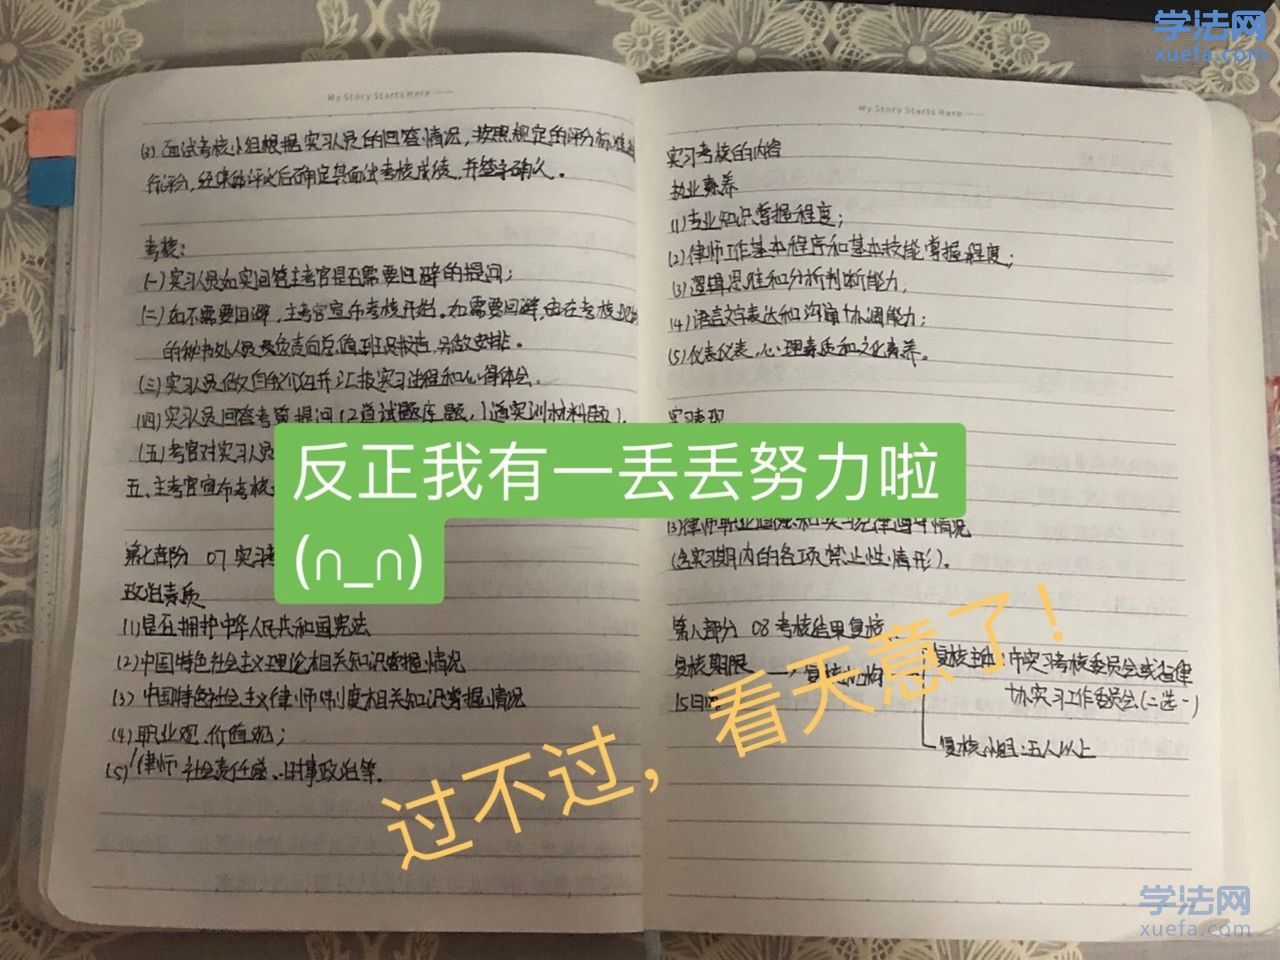 学法网
xuefa.com
My Story Starts Here
(3) 面试考核小组根据实习人员的回答情况，按照规定的评分标准进
行评分，经集体评议后确定其面试考核成绩，并签字确认。
考核：
(一) 实习人员如实回答主考官是否需要回避的提问；
(二) 如不需要回避，主考官宣布考核开始。如需要回避，由在考核现场
的秘书处人员
报告，另做安排。
(三) 实习人员做自我介绍并汇报实习过程和心得体会。
(四) 实习人员回答考官提问（2道试题库题，1道实训材料题）。
(五) 考官对实习人员
五、主考官宣布考核
第七部分 07 实习考
政治素质
(1) 是否拥护中华人民共和国宪法
(2) 中国特色社会主义理论相关知识掌握情况
(3) 中国特色社会主义律师制度相关知识掌握情况
(4) 职业观、价值观；
(5) 律师社会责任感、时事政治等。
My Story Starts Here
实习考核的内容
执业素养
(1) 专业知识掌握程度；
(2) 律师工作基本程序和基本技能掌握程度；
(3) 逻辑思维和分析判断能力；
(4) 语言文字表达和沟通协调能力；
(5) 仪表仪表、心理素质和文化素养。
实习表现
(3) 律师职业道德和实习纪律遵守情况
(含实习期内的各项禁止性情形)。
第八部分 08 考核结果复核
复核期限
15日内
复核机构
复核主体：市实习考核委员会或省律
协实习工作委员会(二选一)
复核小组：五人以上
反正我有一丢丢努力啦
(∩_∩)
过不过，看天意了！
学法网
xuefa.com